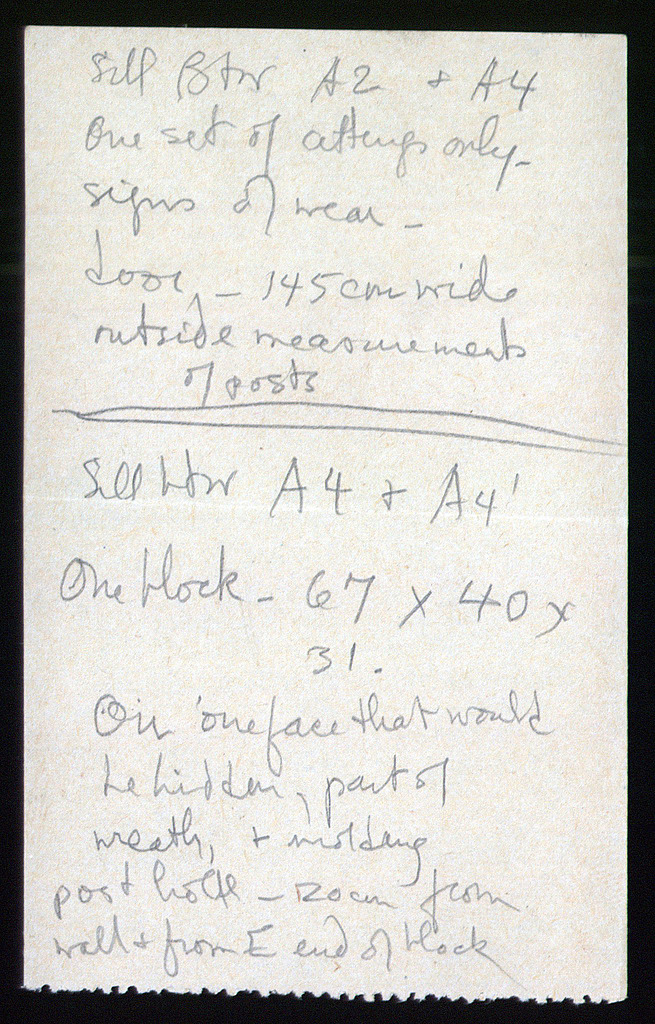 Sill Btw A2 + A4
One set of cuttings only -
signs of wear -
door, - 145 cm wide
outside measurements
of posts
Sill btw A4 + A4'
One block - 67 x 40 x
31.
On one face that would
be hidden, part of
wreath, + molding
post hole - 20 cm from
wall + from E end of block